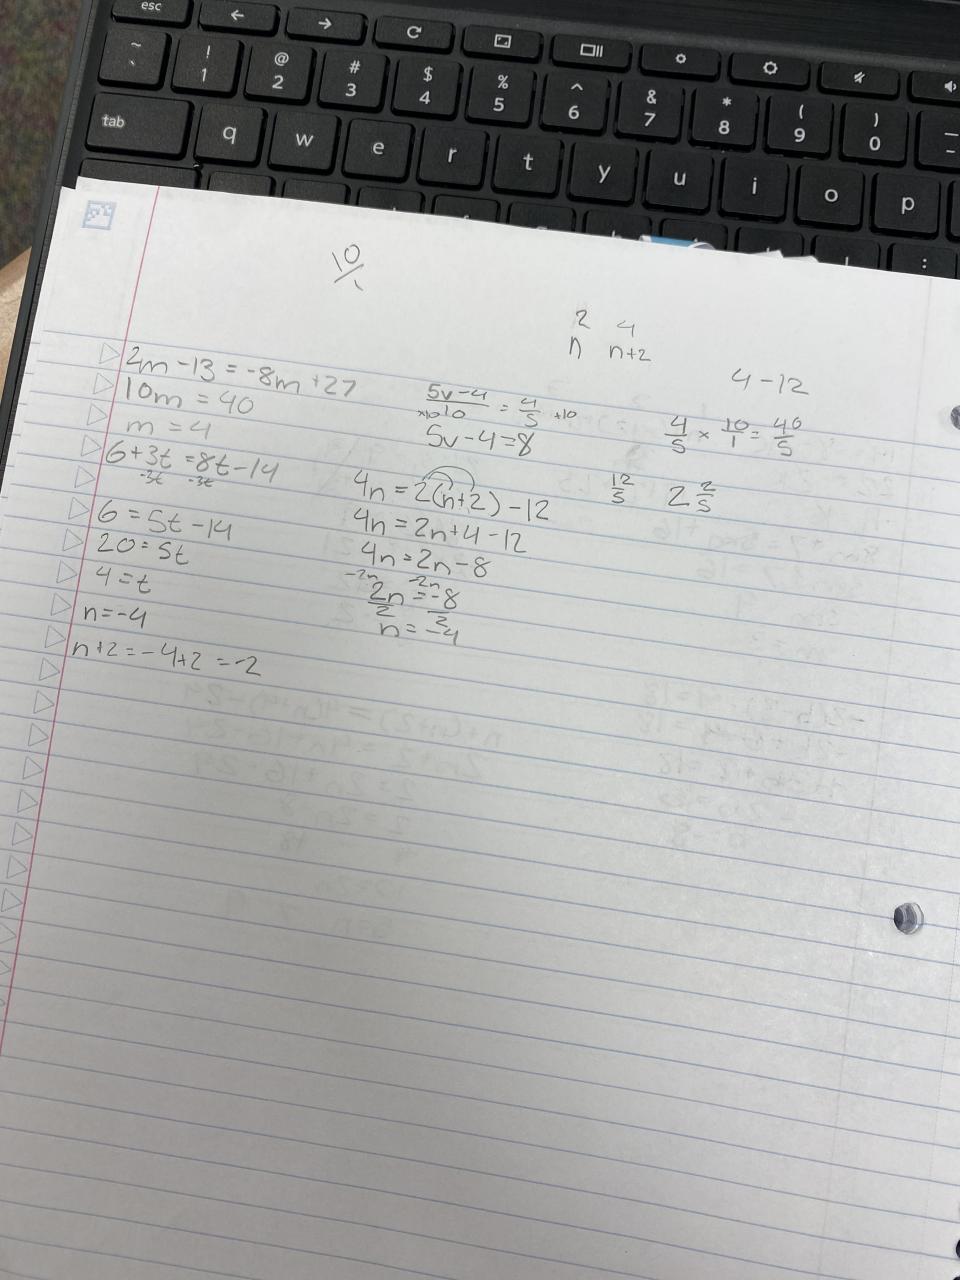 esc
~ ` ! 1 @ 2 # 3 $ 4 % 5 ^ 6 & 7 * 8 ( 9 ) 0 _ -
tab q w e r t y u i o p
:
10/1
2 4
n n+2
4-12
2m-13=-8m+27
10m=40
m=4
6+3t=8t-14
-3t -3t
6=5t-14
20=5t
4=t
n=-4
n+2=-4+2=-2
5v-4/10=4/5
×10 ×10
5v-4=8
4n=2(n+2)-12
4n=2n+4-12
4n=2n-8
-2n -2n
2n/2=-8/2
n=-4
4/5×10/1=40/5
12/5 2 2/5